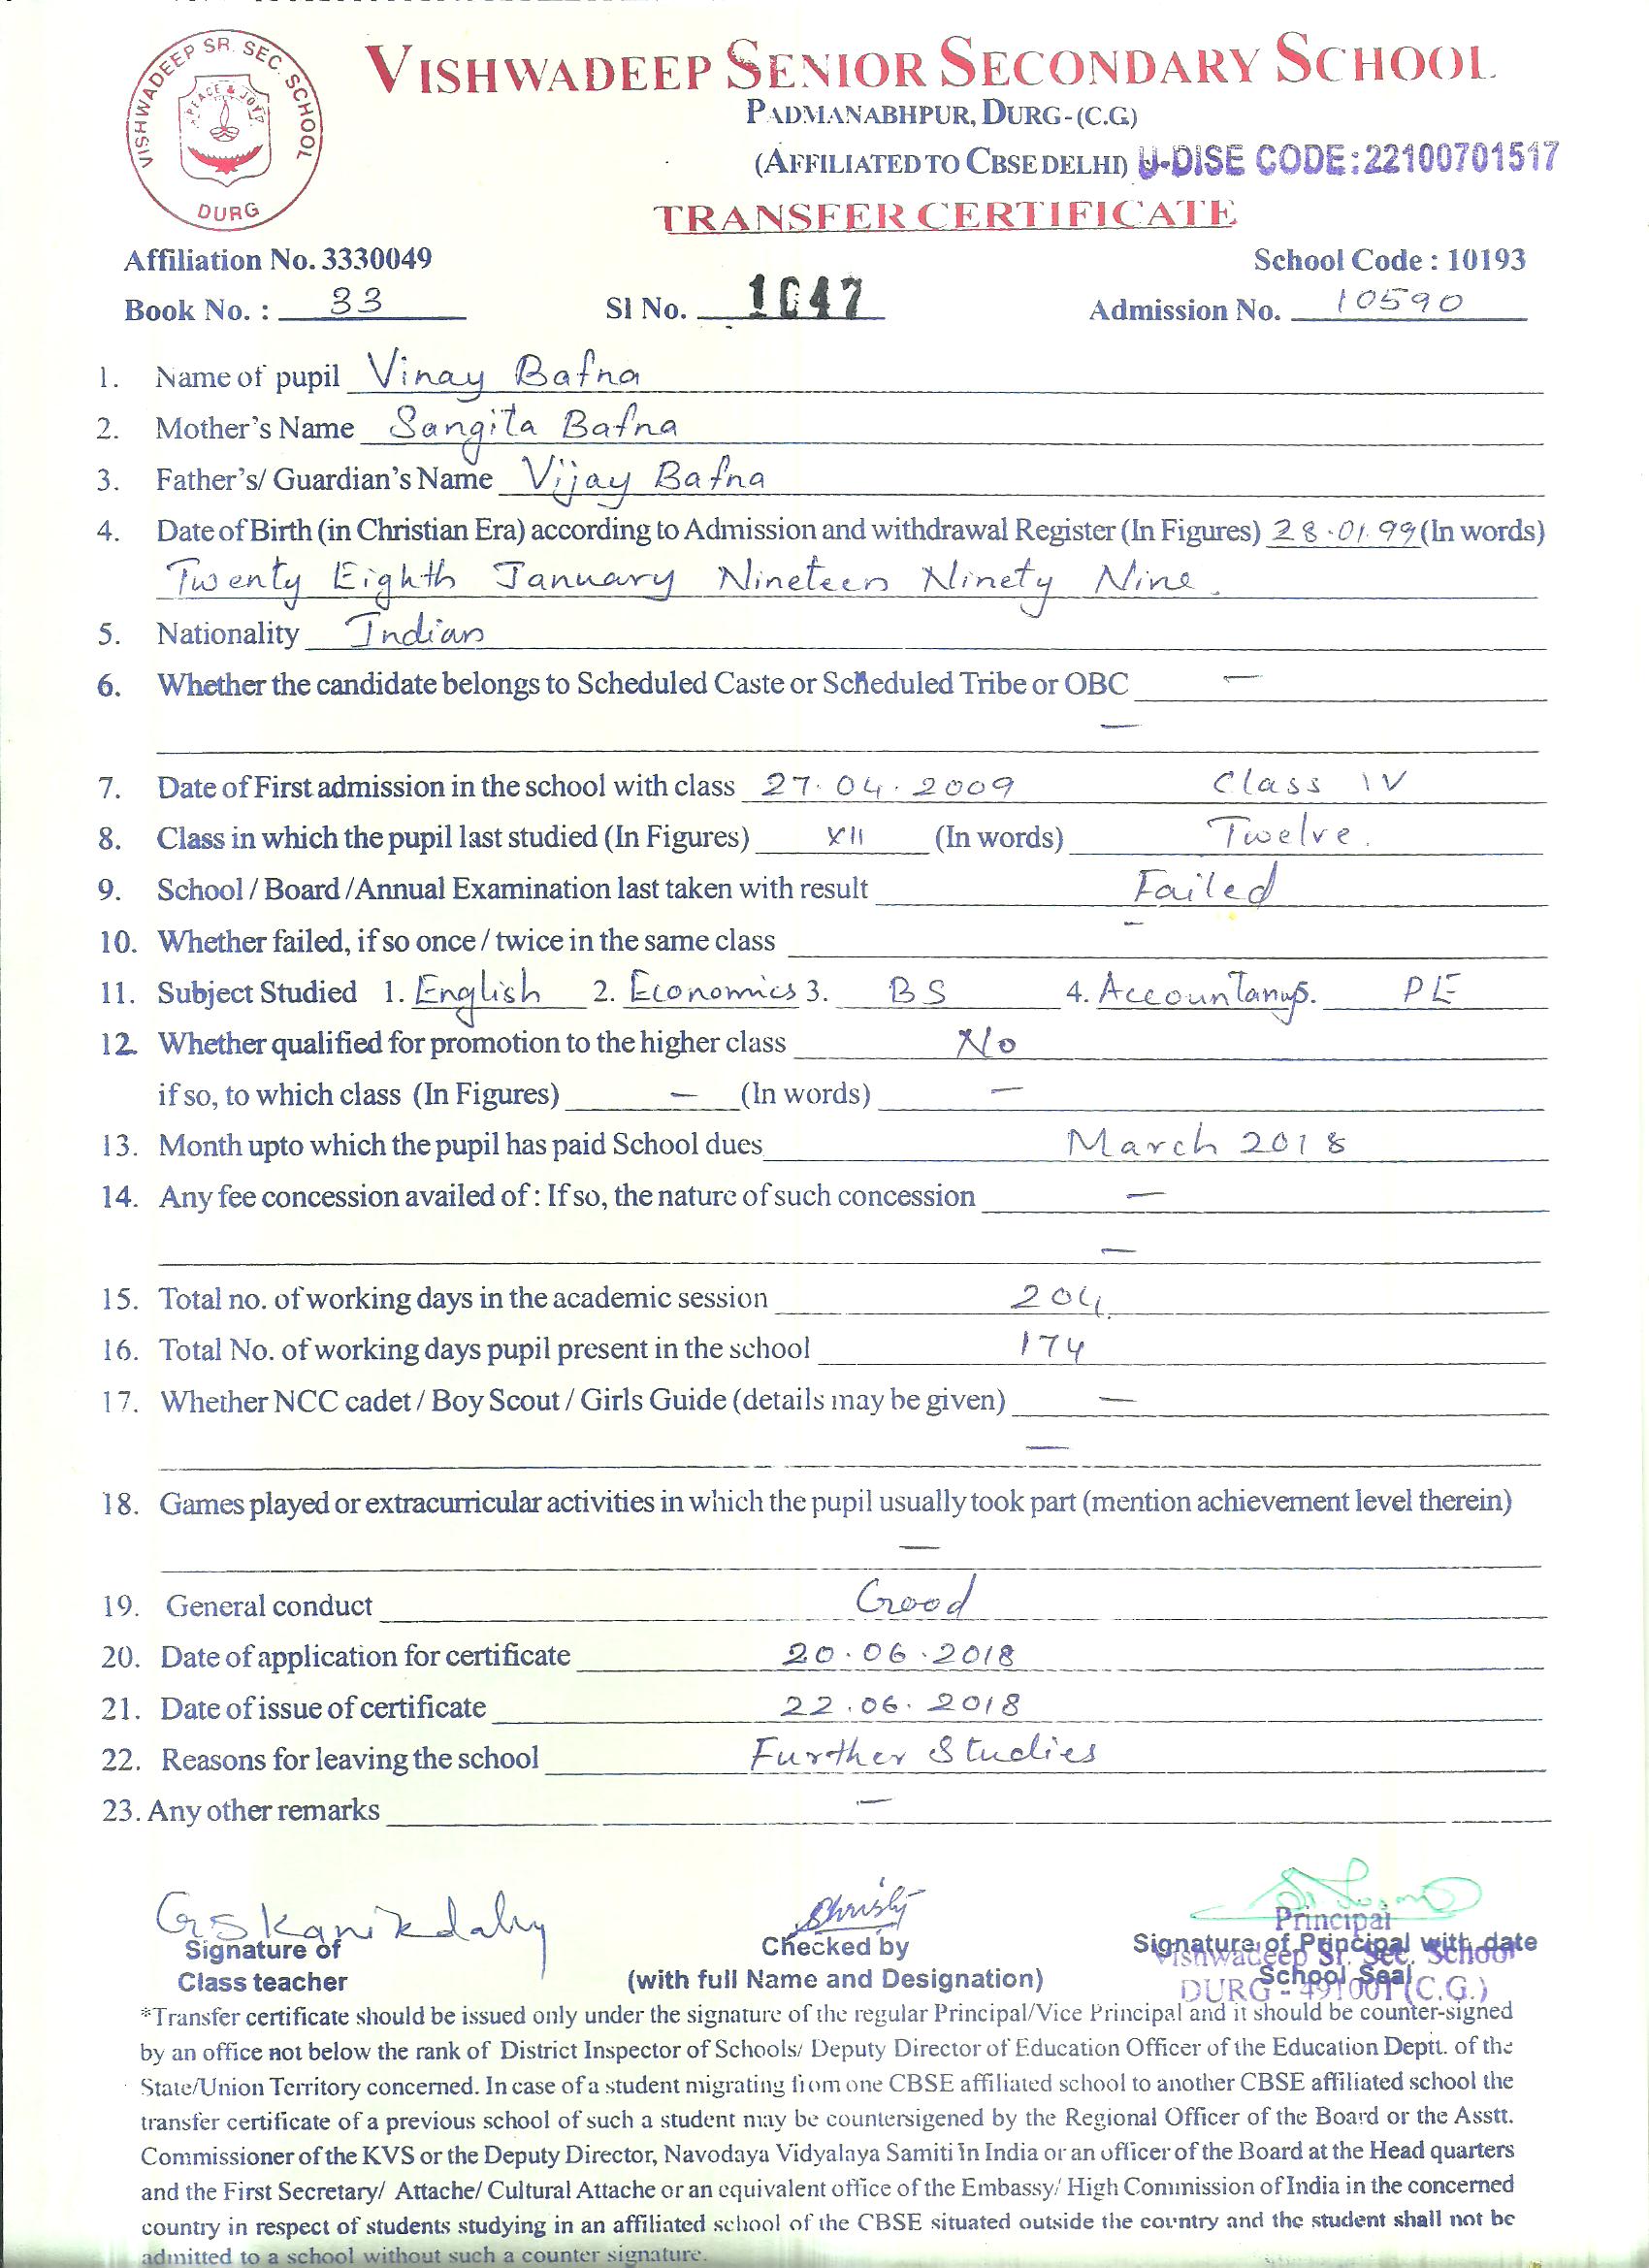 VISHWADEEP SR. SEC. SCHOOL
PEACE & JOY
DURG
VISHWADEEP SENIOR SECONDARY SCHOOL
PADMANABHPUR, DURG-(C.G)
(AFFILIATED TO CBSE DELHI) U-DISE CODE:22100701517
TRANSFER CERTIFICATE
Affiliation No. 3330049 School Code : 10193
Book No. : 33 Sl No. 1047 Admission No. 10590
1. Name of pupil Vinay Bafna
2. Mother's Name Sangita Bafna
3. Father's/ Guardian's Name Vijay Bafna
4. Date of Birth (in Christian Era) according to Admission and withdrawal Register (In Figures) 28.01.99 (In words)
Twenty Eighth January Nineteen Ninety Nine.
5. Nationality Indian
6. Whether the candidate belongs to Scheduled Caste or Scheduled Tribe or OBC —
—
7. Date of First admission in the school with class 27.04.2009 Class IV
8. Class in which the pupil last studied (In Figures) XII (In words) Twelve.
9. School / Board /Annual Examination last taken with result Failed
10. Whether failed, if so once / twice in the same class —
11. Subject Studied 1. English 2. Economics 3. BS 4. Accountancy 5. PE
12. Whether qualified for promotion to the higher class No
if so, to which class (In Figures) — (In words) —
13. Month upto which the pupil has paid School dues March 2018
14. Any fee concession availed of : If so, the nature of such concession —
—
15. Total no. of working days in the academic session 204
16. Total No. of working days pupil present in the school 174
17. Whether NCC cadet / Boy Scout / Girls Guide (details may be given) —
—
18. Games played or extracurricular activities in which the pupil usually took part (mention achievement level therein)
—
19. General conduct Good
20. Date of application for certificate 20.06.2018
21. Date of issue of certificate 22.06.2018
22. Reasons for leaving the school Further Studies
23. Any other remarks —
Principal
Signature of Checked by Signature of Principal with date
Vishwadeep Sr. Sec. School
Class teacher (with full Name and Designation) School Seal
DURG - 491001 (C.G.)
*Transfer certificate should be issued only under the signature of the regular Principal/Vice Principal and it should be counter-signed
by an office not below the rank of District Inspector of Schools/ Deputy Director of Education Officer of the Education Deptt. of the
State/Union Territory concerned. In case of a student migrating from one CBSE affiliated school to another CBSE affiliated school the
transfer certificate of a previous school of such a student may be countersigened by the Regional Officer of the Board or the Asstt.
Commissioner of the KVS or the Deputy Director, Navodaya Vidyalaya Samiti in India or an officer of the Board at the Head quarters
and the First Secretary/ Attache/ Cultural Attache or an equivalent office of the Embassy/ High Commission of India in the concerned
country in respect of students studying in an affiliated school of the CBSE situated outside the country and the student shall not be
admitted to a school without such a counter signature.